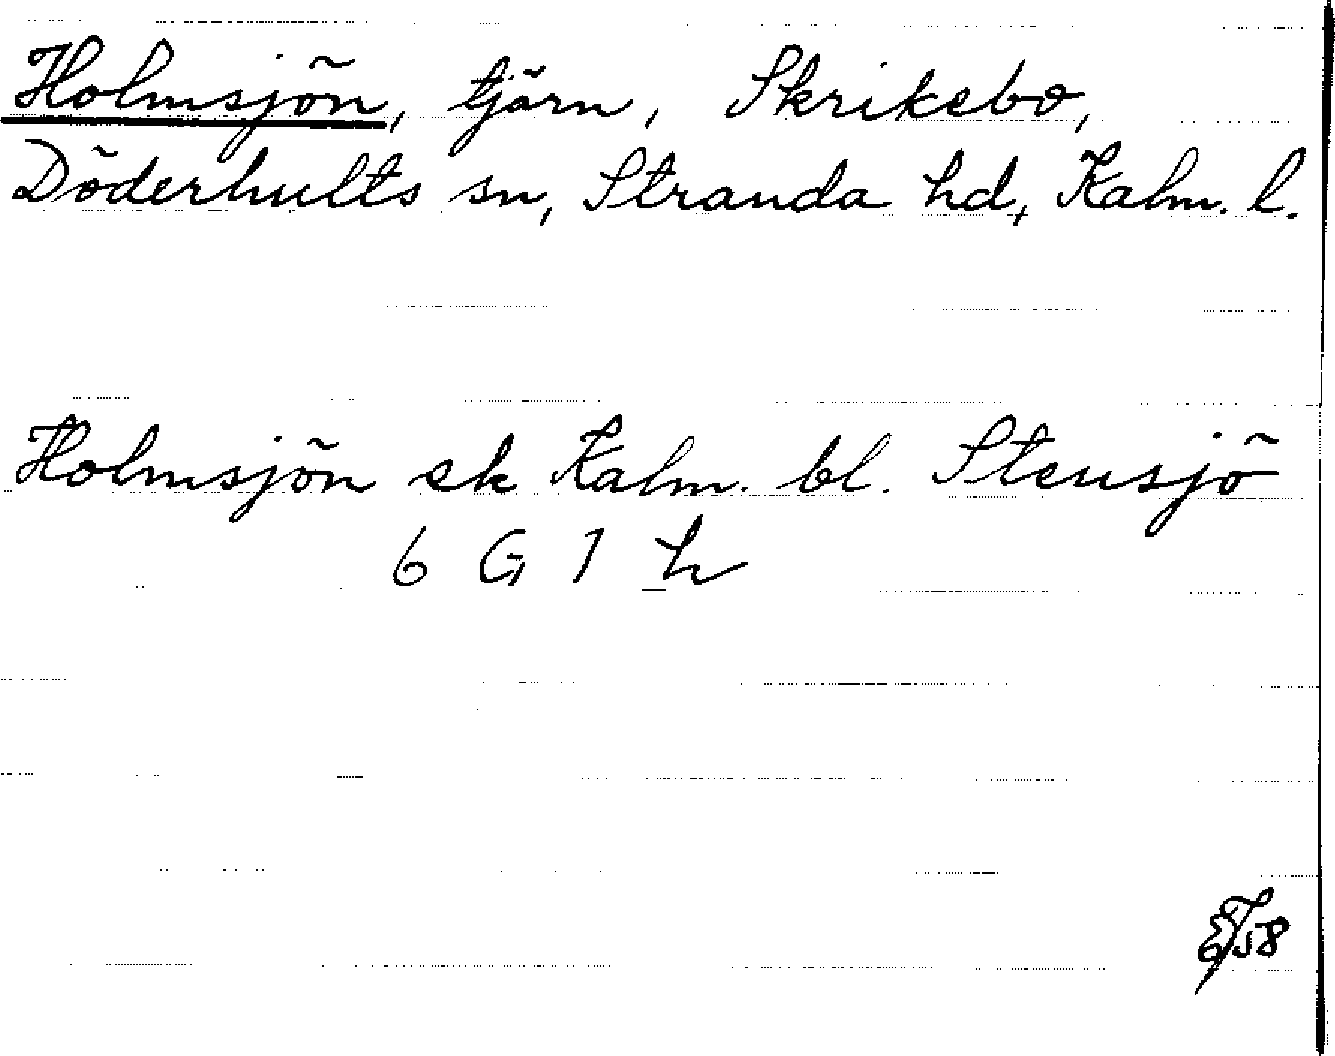 Holmsjön, tjärn, Skrikebo,
Döderhults sn, Stranda hd, Kalm. l.
Holmsjön ek Kalm. bl. Stensjö
6 G 1 h
58